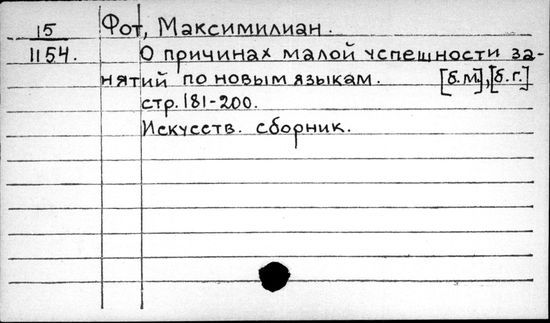 15 Фот, Максимилиан.
1154. О причинах малой успешности за-
нятий по новым языкам. [б.м.],[б.г.]
стр. 181-200.
Искусств. сборник.